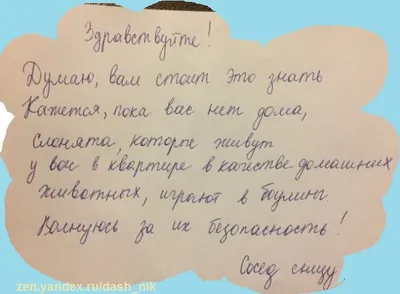 Здравствуйте!
Думаю, вам стоит это знать
Кажется, пока вас нет дома,
слонята, которые живут
у вас в квартире в качестве домашних
животных, играют в боулинг.
Волнуюсь за их безопасность!
Сосед снизу
zen.yandex.ru/dash_nik